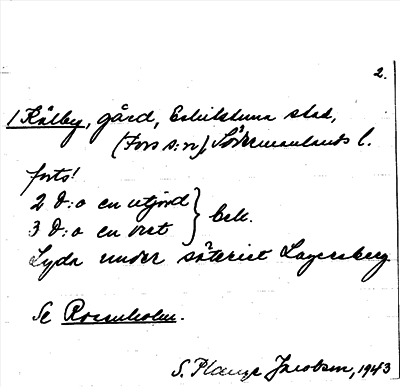 2.
1 Kälby, gård, Eskilstuna stad,
(Fors s:n), Södermanlands l.
forts!
2 d:o en utjord
3 d:o en öret } bek.
Lyda under säteriet Lagersberg
Se Rosenholm.
S. Plauge Jacobson, 1943